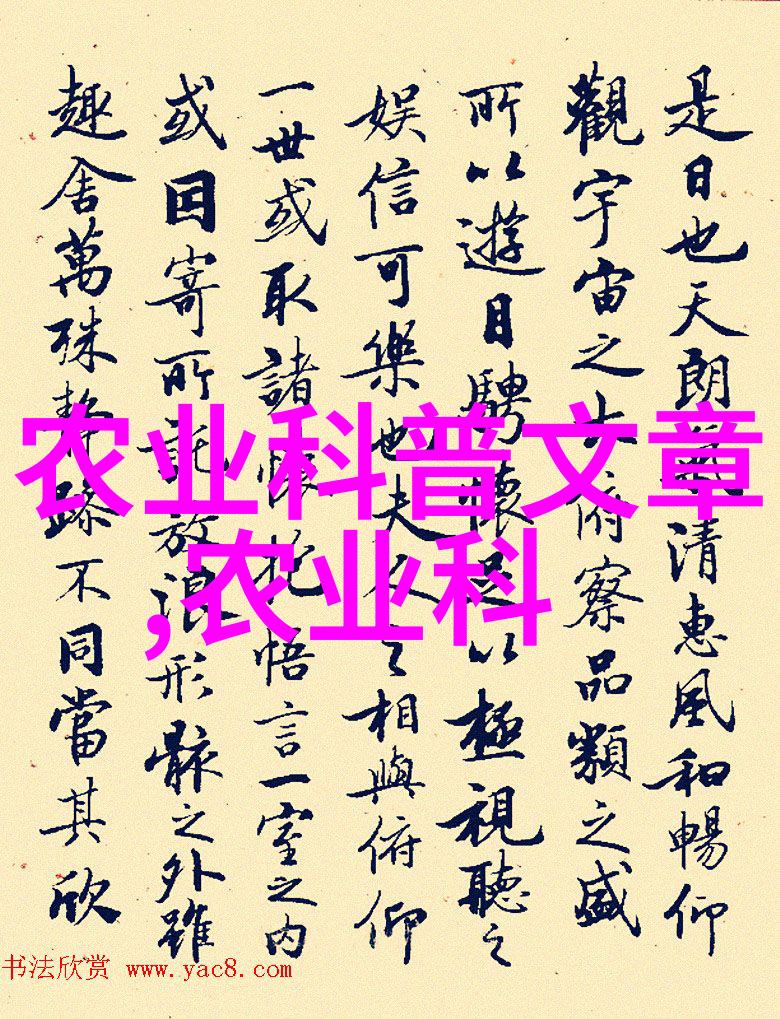 是日也天朗氣清惠風和暢仰
觀宇宙之大俯察品類之盛
所以遊目騁懷足以極視聽之
娛信可樂也夫人之相與俯仰
一世或取諸懷抱悟言一室之內
或因寄所託放浪形骸之外雖
趣舍萬殊靜躁不同當其欣
农业科普文章
,农业科
书法欣赏 www.yac8.com